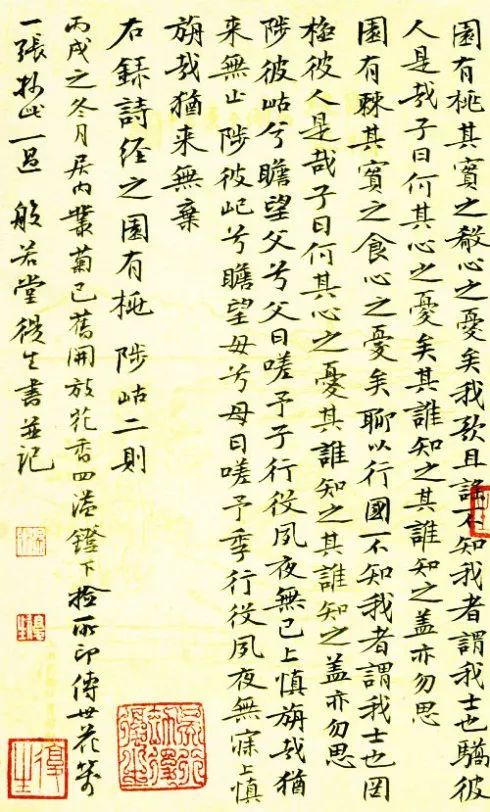 園有桃其實之殽心之憂矣我歌且謠不知我者謂我士也驕彼
人是哉子曰何其心之憂矣其誰知之其誰知之盖亦勿思
園有棘其實之食心之憂矣聊以行國不知我者謂我士也罔
極彼人是哉子曰何其心之憂其誰知之其誰知之盖亦勿思
陟彼岵兮瞻望父兮父曰嗟予子行役夙夜無已上慎旃哉猶
来無止陟彼屺兮瞻望母兮母曰嗟予季行役夙夜無寐上慎
旃哉猶来無棄
右録詩经之園有桃陟岵二則
丙戌之冬月居内叢菊已舊開放花香四溢鐙下撿所印傳世花箋
一張抄此一過 般若堂 生書並記